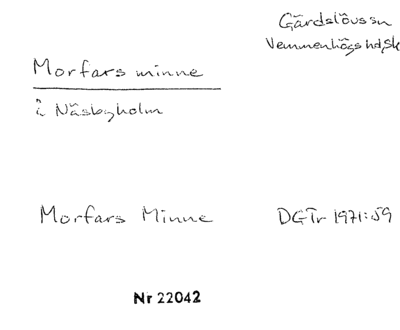 Gärdslövssn
Vemmenhögs hd, Sk
Morfars minne
i Näsbyholm
Morfars Minne DGTr 1971:59
Nr 22042